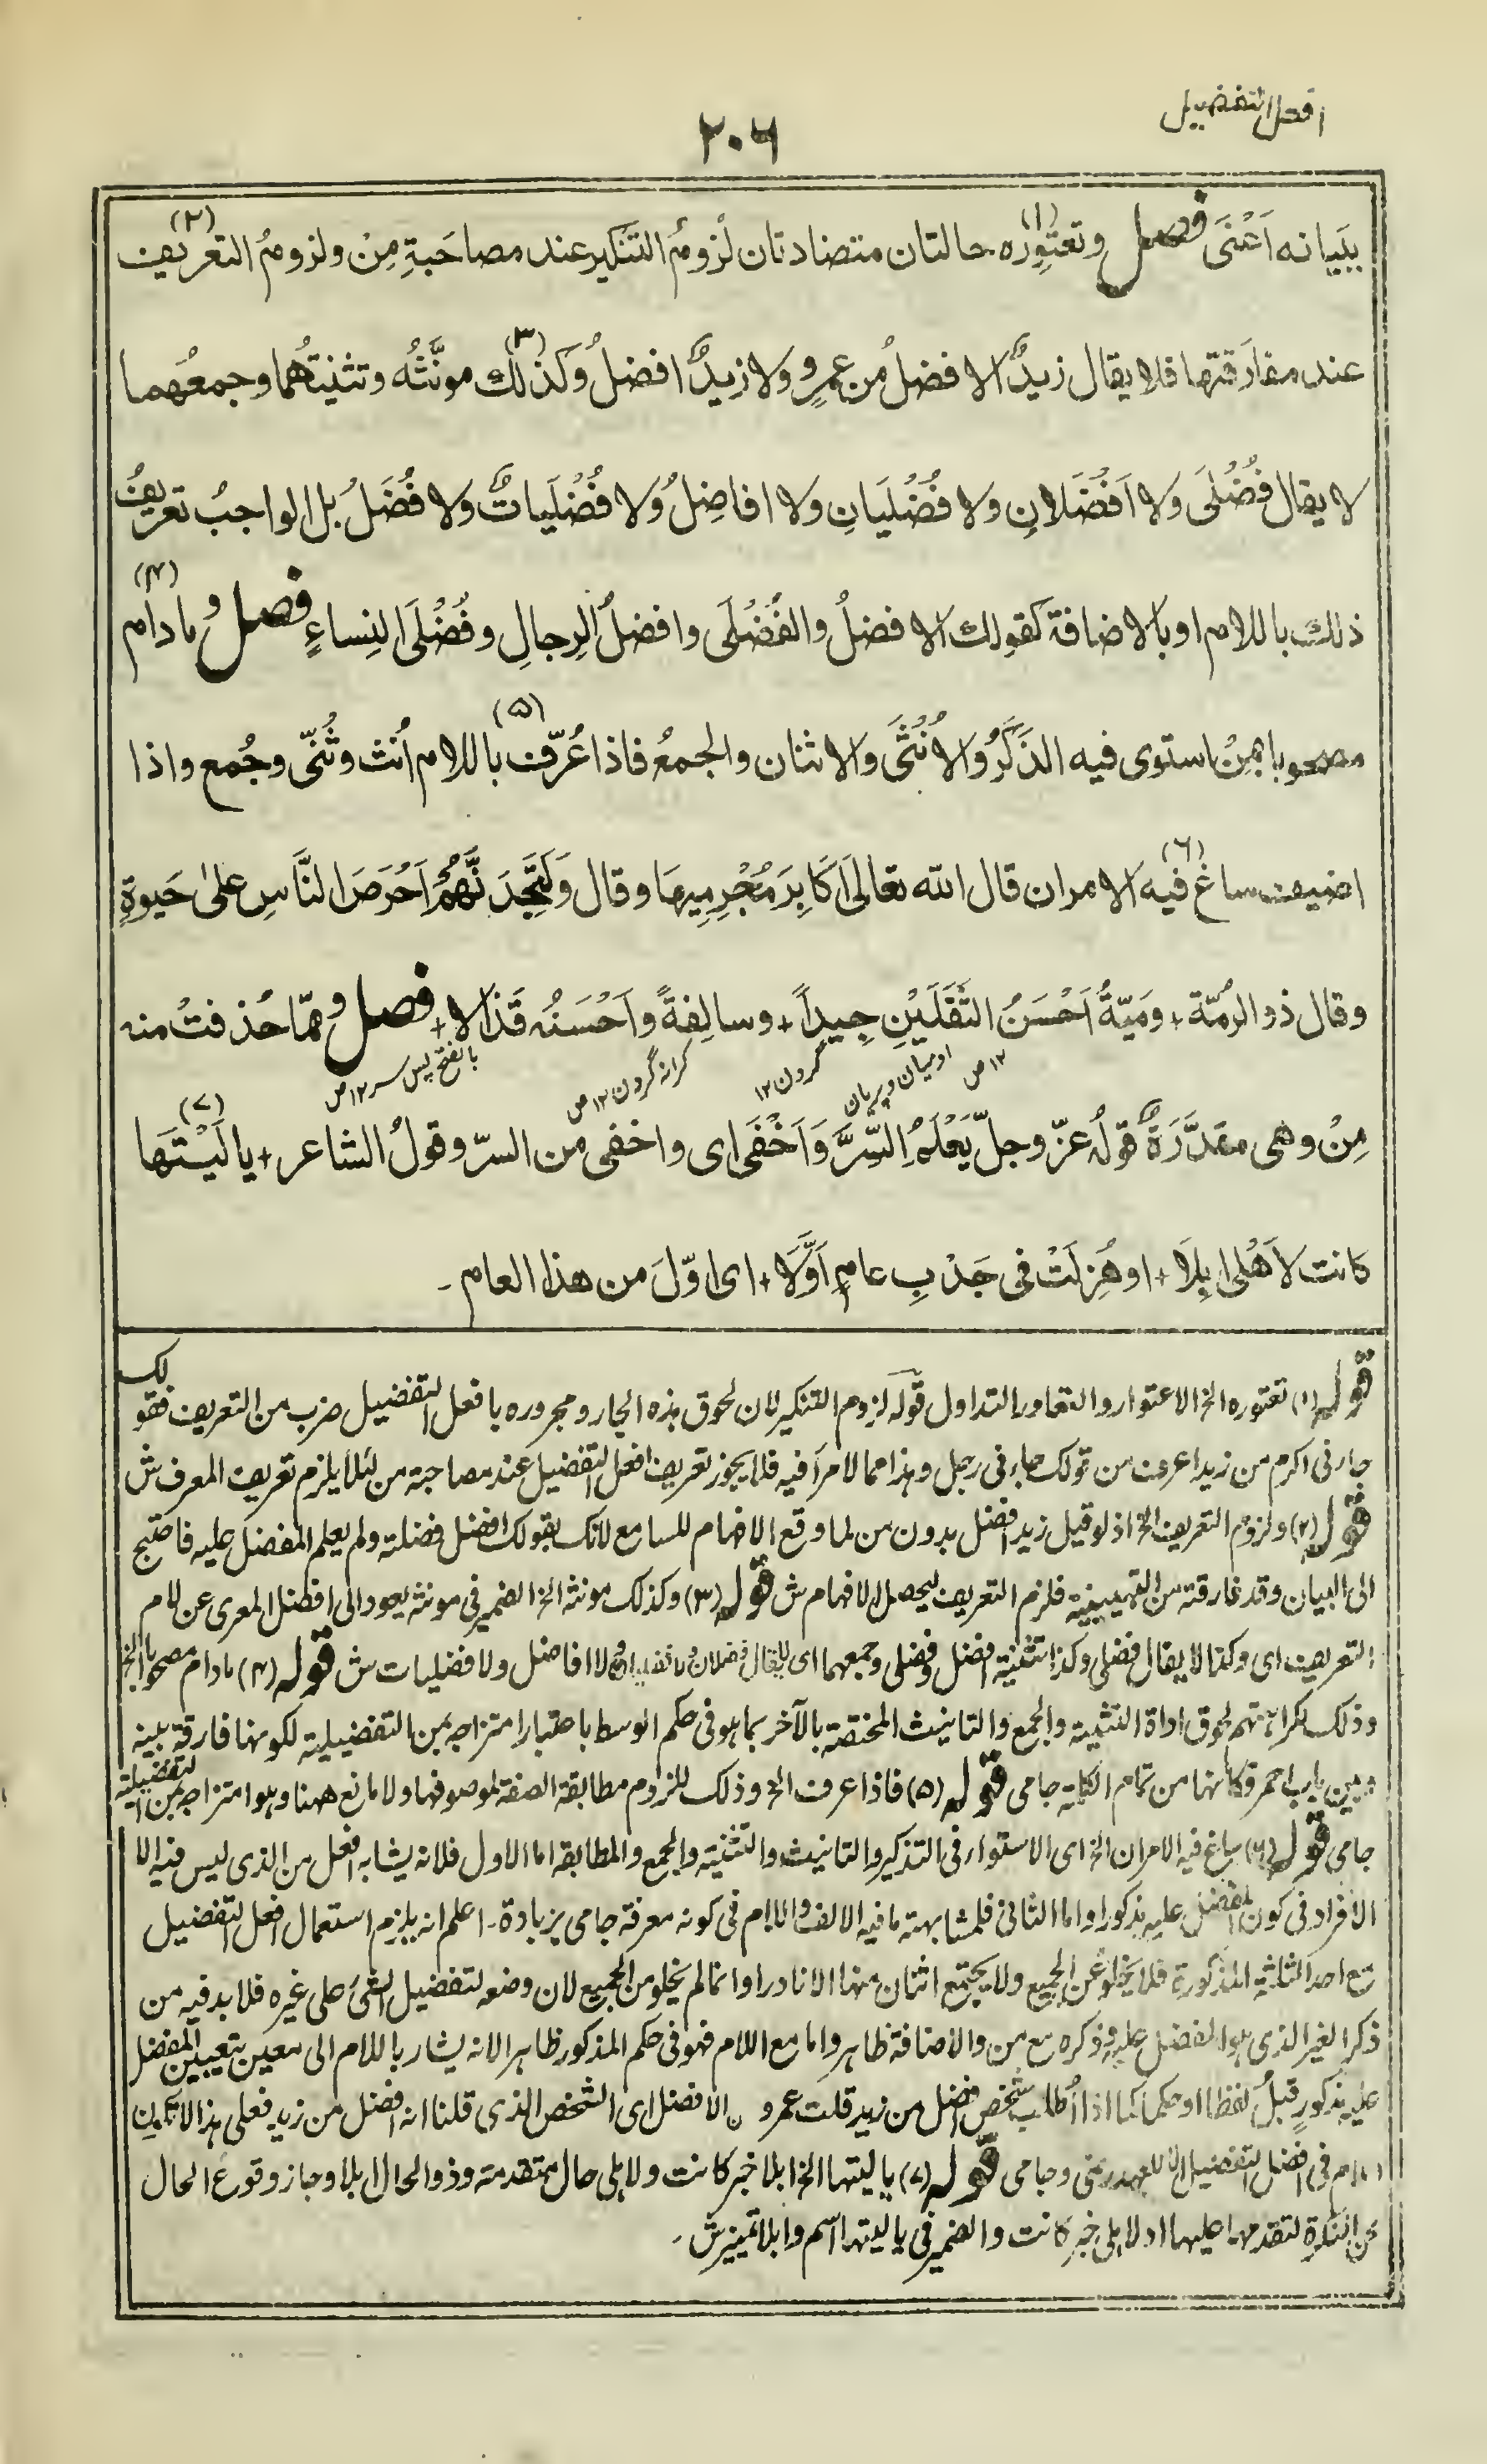 افعل التفضيل
٢٠٦
ببَيانه اَعْنَى فصل وتعتوِره (١) حالتان متضادتان لُزومُ التنكير عند مصاحَبةِ مِنْ ولزومُ التعريف (٢)
عند مفارَقتها فلا يقال زيدٌ الافضلُ من عمرٍو ولا زيدٌ افضلُ وكَذٰلك (٣) مونَّثُه وتثنيتُهما وجمعُهما
لا يقال فُضْلَى وَلا اَفْضَلانِ ولا فُضْلَيَانِ ولا افاضِلُ ولا فُضْلَياتٌ ولا فُضَلُ بل الواجبُ تعريفُ
ذلك باللام او بالاضافة كقولك الافضلُ والفُضْلَى وافضلُ الرجالِ وفُضْلَى النِساءِ فصل وما دام (٤)
مصحوبا بمِنْ استوى فيه الذَكَرُ والاُنْثَى والاثنان والجمعُ فاذا عُرّفت (٥) باللام اُنث وثُنّى وجُمع واذا
اضيف ساغ فيه (٦) الامران قال الله تعالى اَكَابِرَ مُجْرِمِيهَا وقال وَلَتَجِدَنَّهُمْ اَحْرَصَ النَّاسِ عَلىٰ حَيوةٍ
وقال ذو الرُمّة + ومَيّةُ اَحْسَنُ الثَقَلَيْنِ جِيداً + وسالِفةً واَحْسَنُه قَذالا + فصل ومما حُذفتْ منه
١٢ ص آدميان وپريان گردن ١٢ كرانه گردن ١٢ ص بالفتح پس سر ١٢ ص
مِنْ وهى مقدَّرَةٌ قولُه عزّ وجلّ يَعْلَمُ السِّرَّ وَاَخْفَى اى واخفى من السرّ وقولُ الشاعر + يا لَيْتَها (٧)
كانت لاَهْلى اِبِلاَ + او هُزِلَتْ فى جَدْبِ عامٍ اَوَّلَا + اى اوّلَ من هذا العام -
قوله (١) تعتوره الخ الاعتوار والتعاور التداول قوله لزوم التنكير لان لحوق هذه الجار ومجروره بافعل التفضيل ضرب من التعريف فقولك
جارنى اكرم من زيد اعرف من قولك جاءنى رجل وهذا مما لامراَ فيه فلا يجوز تعريف افعل التفضيل عند مصاحبة من لئلا يلزم تعريف المعرف ش
قوله (٢) ولزوم التعريف الخ اذ لو قيل زيد افضل بدون من لما وقع الافهام للسامع لانك بقولك افضل فضلته ولم يعلم المفضل عليه فاحتيج
الى البيان وقد فارقته من التبيينية فلزم التعريف ليحصل الافهام ش قوله (٣) وكذلك مونثه الخ الضمير فى مونثه يعود الى افضل المعرى عن لام
التعريف اى وكذا لا يقال فضلى وكذا تثنية افضل وفضلى وجمعهما اى لا يقال افضلان ولا فضليان ولا افاضل ولا فضليات ش قوله (٤) ما دام مصحوبا الخ
وذلك لكراهتهم لحوق اداة التثنية والجمع والتانيث المختصة بالآخر بما هو فى حكم الوسط باعتبار امتزاجه بمن التفضيلية لكونها فارقة بينه
وبين باب احمر فكانها من تمام الكلمة جامى قوله (٥) فاذا عرف الخ وذلك للزوم مطابقة الصفة لموصوفها ولا مانع ههنا وهو امتزاجه بمن التفضيلية
جامى قوله (٦) ساغ فيه الامران الخ اى الاستوار فى التذكير والتانيث والتثنية والجمع والمطابقة اما الاول فلانه يشابه افعل من الذى ليس فيه الا
الافراد فى كون المفضل عليه مذكورا واما الثانى فلمشابهته ما فيه الالف واللام فى كونه معرفة جامى بزيادة - اعلم انه يلزم استعمال افعل التفضيل
مع احد الثلثة المذكورة فلا يخلو عن الجميع ولا يجتمع اثنان منها الا نادرا وانما لم يخلو من الجميع لان وضعه لتفضيل الشئ على غيره فلا بد فيه من
ذكر الغير الذى هو المفضل عليه وذكره مع من والاضافة ظاهر واما مع اللام فهو فى حكم المذكور ظاهرا لانه يشار باللام الى معين بتعيين المفضل
عليه مذكور قبل لفظا او حكما كما اذا طلب شخص افضل من زيد قلت عمرو الافضل اى الشخص الذى قلنا انه افضل من زيد فعلى هذا لا تكون
اللام فى افعل التفضيل الا للعهد رضى وجامى قوله (٧) يا ليتها الخ ابلا خبر كانت ولاهلى حال متقدمة وذو الحال ابلا وجاز وقوع الحال
عن النكرة لتقدمها عليها او لاهلى خبر كانت والضمير فى يا ليتها اسم وابلا تمييز ش -